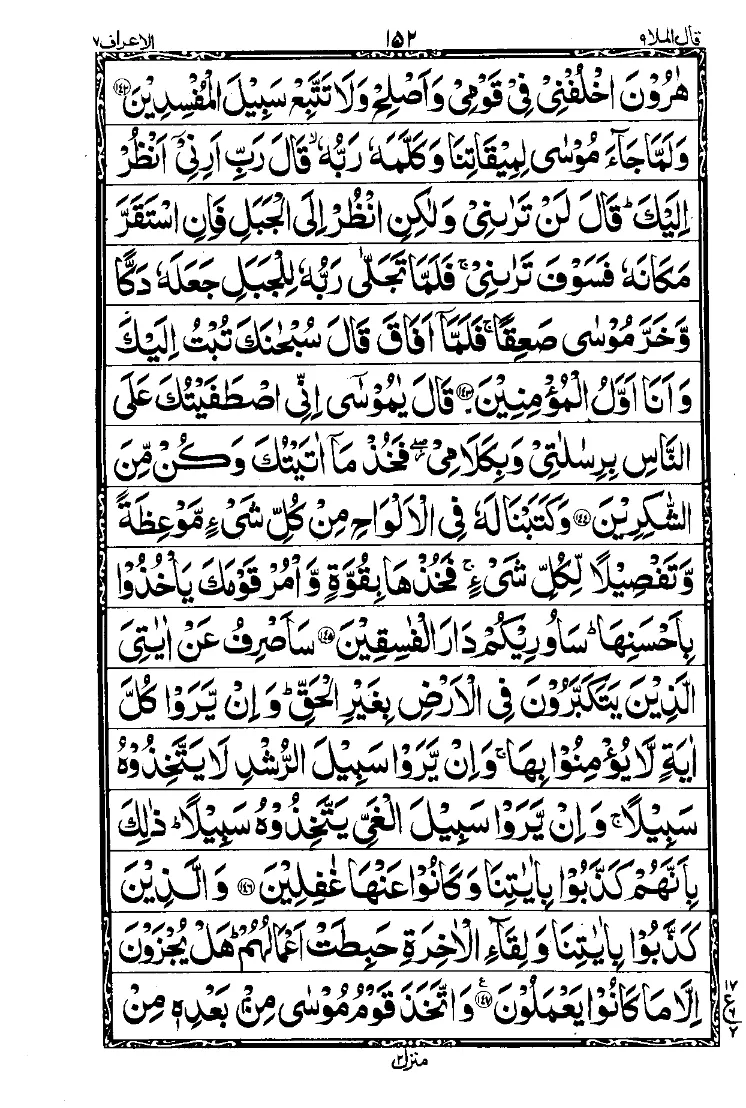 قال الملا ٩ ١٥٢ الاعراف ٧
هٰرُوْنَ اخْلُفْنِیْ فِیْ قَوْمِیْ وَاَصْلِحْ وَلَا تَتَّبِعْ سَبِیْلَ الْمُفْسِدِیْنَ ۝۱۴۲
وَلَمَّا جَآءَ مُوْسٰی لِمِیْقَاتِنَا وَكَلَّمَهٗ رَبُّهٗ ۙ قَالَ رَبِّ اَرِنِیْۤ اَنْظُرْ
اِلَیْكَ ؕ قَالَ لَنْ تَرٰىنِیْ وَلٰكِنِ انْظُرْ اِلَی الْجَبَلِ فَاِنِ اسْتَقَرَّ
مَكَانَهٗ فَسَوْفَ تَرٰىنِیْ ۚ فَلَمَّا تَجَلّٰی رَبُّهٗ لِلْجَبَلِ جَعَلَهٗ دَكًّا
وَّخَرَّ مُوْسٰی صَعِقًا ۚ فَلَمَّاۤ اَفَاقَ قَالَ سُبْحٰنَكَ تُبْتُ اِلَیْكَ
وَاَنَا اَوَّلُ الْمُؤْمِنِیْنَ ۝۱۴۳ قَالَ یٰمُوْسٰۤی اِنِّی اصْطَفَیْتُكَ عَلَی
النَّاسِ بِرِسٰلٰتِیْ وَبِكَلَامِیْ ۖؗ فَخُذْ مَاۤ اٰتَیْتُكَ وَكُنْ مِّنَ
الشّٰكِرِیْنَ ۝۱۴۴ وَكَتَبْنَا لَهٗ فِی الْاَلْوَاحِ مِنْ كُلِّ شَیْءٍ مَّوْعِظَةً
وَّتَفْصِیْلًا لِّكُلِّ شَیْءٍ ۚ فَخُذْهَا بِقُوَّةٍ وَّاْمُرْ قَوْمَكَ یَاْخُذُوْا
بِاَحْسَنِهَا ؕ سَاُورِیْكُمْ دَارَ الْفٰسِقِیْنَ ۝۱۴۵ سَاَصْرِفُ عَنْ اٰیٰتِیَ
الَّذِیْنَ یَتَكَبَّرُوْنَ فِی الْاَرْضِ بِغَیْرِ الْحَقِّ ؕ وَاِنْ یَّرَوْا كُلَّ
اٰیَةٍ لَّا یُؤْمِنُوْا بِهَا ۚ وَاِنْ یَّرَوْا سَبِیْلَ الرُّشْدِ لَا یَتَّخِذُوْهُ
سَبِیْلًا ۚ وَاِنْ یَّرَوْا سَبِیْلَ الْغَیِّ یَتَّخِذُوْهُ سَبِیْلًا ؕ ذٰلِكَ
بِاَنَّهُمْ كَذَّبُوْا بِاٰیٰتِنَا وَكَانُوْا عَنْهَا غٰفِلِیْنَ ۝۱۴۶ وَالَّذِیْنَ
كَذَّبُوْا بِاٰیٰتِنَا وَلِقَآءِ الْاٰخِرَةِ حَبِطَتْ اَعْمَالُهُمْ ؕ هَلْ یُجْزَوْنَ
اِلَّا مَا كَانُوْا یَعْمَلُوْنَ ۝۱۴۷ ع وَاتَّخَذَ قَوْمُ مُوْسٰی مِنْۢ بَعْدِهٖ مِنْ
١٧
ع ٦
٧
منزل ٢